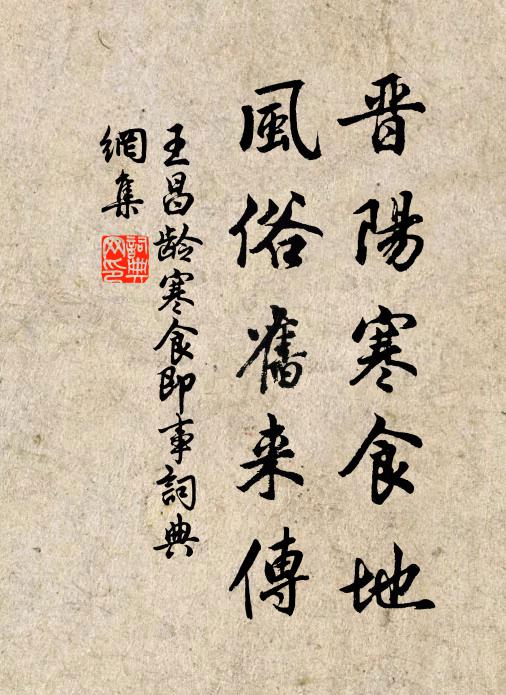 晋陽寒食地
風俗舊来傳
王昌龄寒食即事詞典
網集
詞典
网印